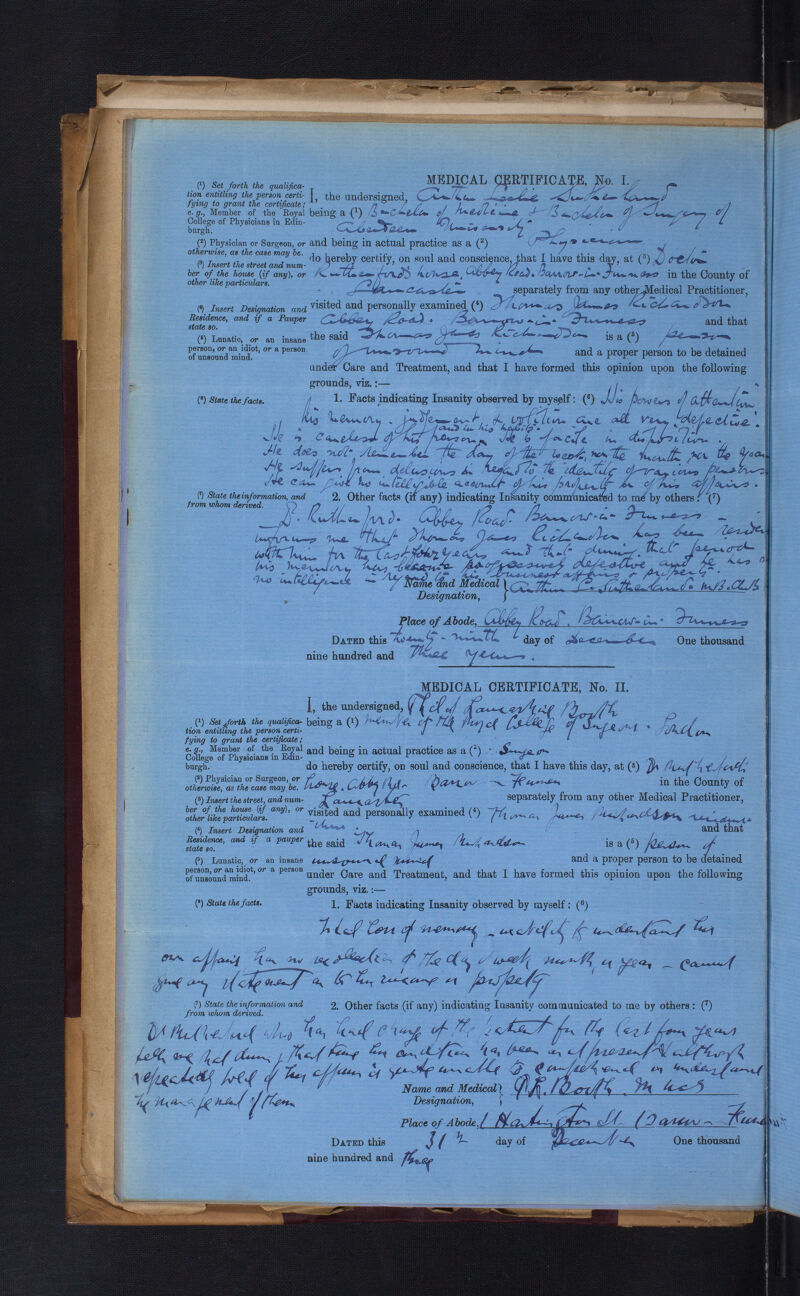 MEDICAL CERTIFICATE, No. I.
(¹) Set forth the qualifica-
tion entitling the person certi-
fying to grant the certificate;
e. g., Member of the Royal
College of Physicians in Edin-
burgh.
(²) Physician or Surgeon, or
otherwise, as the case may be.
(³) Insert the street and num-
ber of the house (if any), or
other like particulars.
(⁴) Insert Designation and
Residence, and if a Pauper
state so.
(⁵) Lunatic, or an insane
person, or an idiot, or a person
of unsound mind.
I, the undersigned, Arthur Leslie Sutherland
being a (¹) Bachelor of Medicine & Bachelor of Surgery of
Aberdeen University
and being in actual practice as a (²) Physician
do hereby certify, on soul and conscience, that I have this day, at (³) Doctor
Rutherford's house, Abbey Road. Barrow-in-Furness in the County of
Lancaster separately from any other Medical Practitioner,
visited and personally examined (⁴) Thomas James Richardson
Abbey Road. Barrow-in-Furness and that
the said Thomas James Richardson is a (⁵) person
of unsound mind and a proper person to be detained
under Care and Treatment, and that I have formed this opinion upon the following
grounds, viz. :—
(⁶) State the facts.
1. Facts indicating Insanity observed by myself: (⁶) His powers of attention,
his memory, judgement, & volition are all very defective.
He is careless of his person and in his habits. He is facile in disposition.
He does not remember the day of the week, nor the month, nor the year
He suffers from delusions in regard to the identity of various persons.
He can give no intelligible account of his property or of his affairs.
(⁷) State the information, and
from whom derived.
2. Other facts (if any) indicating Insanity communicated to me by others: (⁷)
Dr. Rutherford. Abbey Road. Barrow-in-Furness -
informs me that Thomas James Richardson has been
with him for the last four years and that during that period
his memory has become progressively defective and he has
no intelligence in regard to his business affairs or property.
Name and Medical Designation, Arthur L. Sutherland M.B. Ch.B
Place of Abode, Abbey Road. Barrow-in-Furness
DATED this twenty-ninth day of December One thousand
nine hundred and three years.
MEDICAL CERTIFICATE, No. II.
(¹) Set forth the qualifica-
tion entitling the person certi-
fying to grant the certificate;
e. g., Member of the Royal
College of Physicians in Edin-
burgh.
(²) Physician or Surgeon, or
otherwise, as the case may be.
(³) Insert the street, and num-
ber of the house (if any), or
other like particulars.
(⁴) Insert Designation and
Residence, and if a pauper
state so.
(⁵) Lunatic, or an insane
person, or an idiot, or a person
of unsound mind.
I, the undersigned, Booth
being a (¹) member of the Royal College of Surgeons. London
and being in actual practice as a (²) Surgeon
do hereby certify, on soul and conscience, that I have this day, at (³) Dr Rutherford's
house, Abbey Rd. Barrow in Furness in the County of
Lancaster separately from any other Medical Practitioner,
visited and personally examined (⁴) Thomas James Richardson
and that
the said Thomas James Richardson is a (⁵) person of
unsound mind and a proper person to be detained
under Care and Treatment, and that I have formed this opinion upon the following
grounds, viz. :—
(⁶) State the facts.
1. Facts indicating Insanity observed by myself: (⁶)
Total loss of memory - inability to understand his
own affairs has no recollection of the day of week month or year - cannot
give any statement as to his or property
(⁷) State the information and
from whom derived.
2. Other facts (if any) indicating Insanity communicated to me by others: (⁷)
Dr Rutherford who has had charge of the patient for the last four years
tells me that during that time his condition has been as at present & although
repeatedly told of his affairs is quite unable to comprehend or understand
the management of them
Name and Medical Designation, Booth M R C S
Place of Abode, 1 Hartington St. Barrow-Furness
DATED this 31st day of December One thousand
nine hundred and three